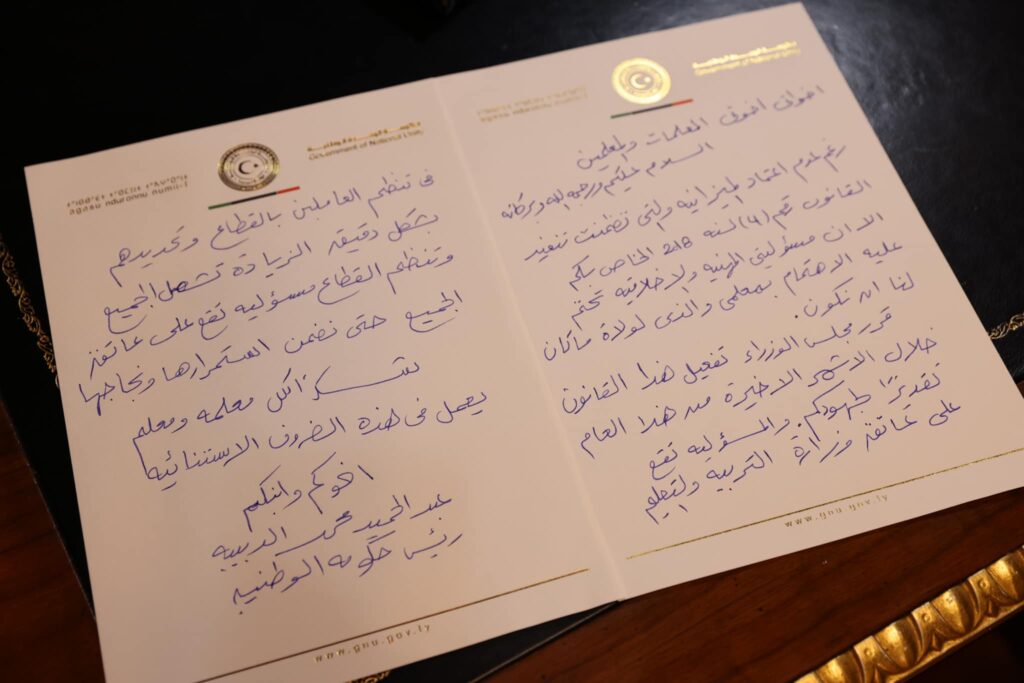 حكومة الوحدة الوطنية
Government of National Unity
agasu nduronnu numii-t
اخواتى اخوتى المعلمات والمعلمين
السلام عليكم ورحمه الله وبركاته
رغم عدم اعتماد الميزانيه والتى تضمنت تنفيذ
القانون رقم (4) لسنه 2018 الخاص بكم
الا ان مسؤليتى المهنيه والاخلاقيه تحتم
عليه الاهتمام بمعلمى والذى لولاة ماكان
لنا ان نكون.
قرر مجلس الوزراء تفعيل هذا القانون
خلال الاشهر الاخيرة من هذا العام
تقديرًا لجهودكم. والمسؤليه تقع
على عاتق وزارة التربيه والتعليم
www.gnu.gov.ly
حكومة الوحدة الوطنية
Government of National Unity
agasu nduronnu numii-t
فى تنظيم العاملين بالقطاع وتحديدهم
بشكل دقيق. الزيادة تشمل الجميع
وتنظيم القطاع مسؤليه تقع على عاتق
الجميع حتى نضمن استمرارها ونجاحها
شكرًا لكل معلمه ومعلم
يعمل فى هذة الضروف الاستثنائيه
اخوكم وابنكم
عبد الحميد محمد الدبيبه
رئيس حكومه الوطنيه
www.gnu.gov.ly